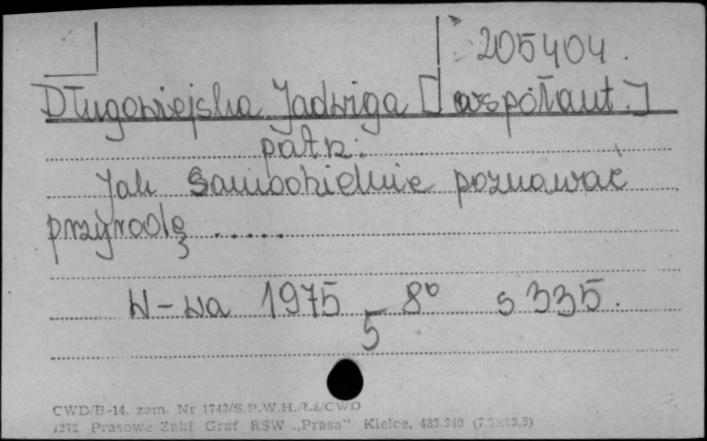 205404.
Długowiejska Jadwiga [współaut.]
patrz:
Jak samodzielnie poznawać
przyrodę ......
W-wa 1975 8° s 335.
5
CWD/B-14. zam. Nr 1743/S.P.W.H./ CWD
1272 Prasowe Zakł Graf RSW „Prasa" Kielce,